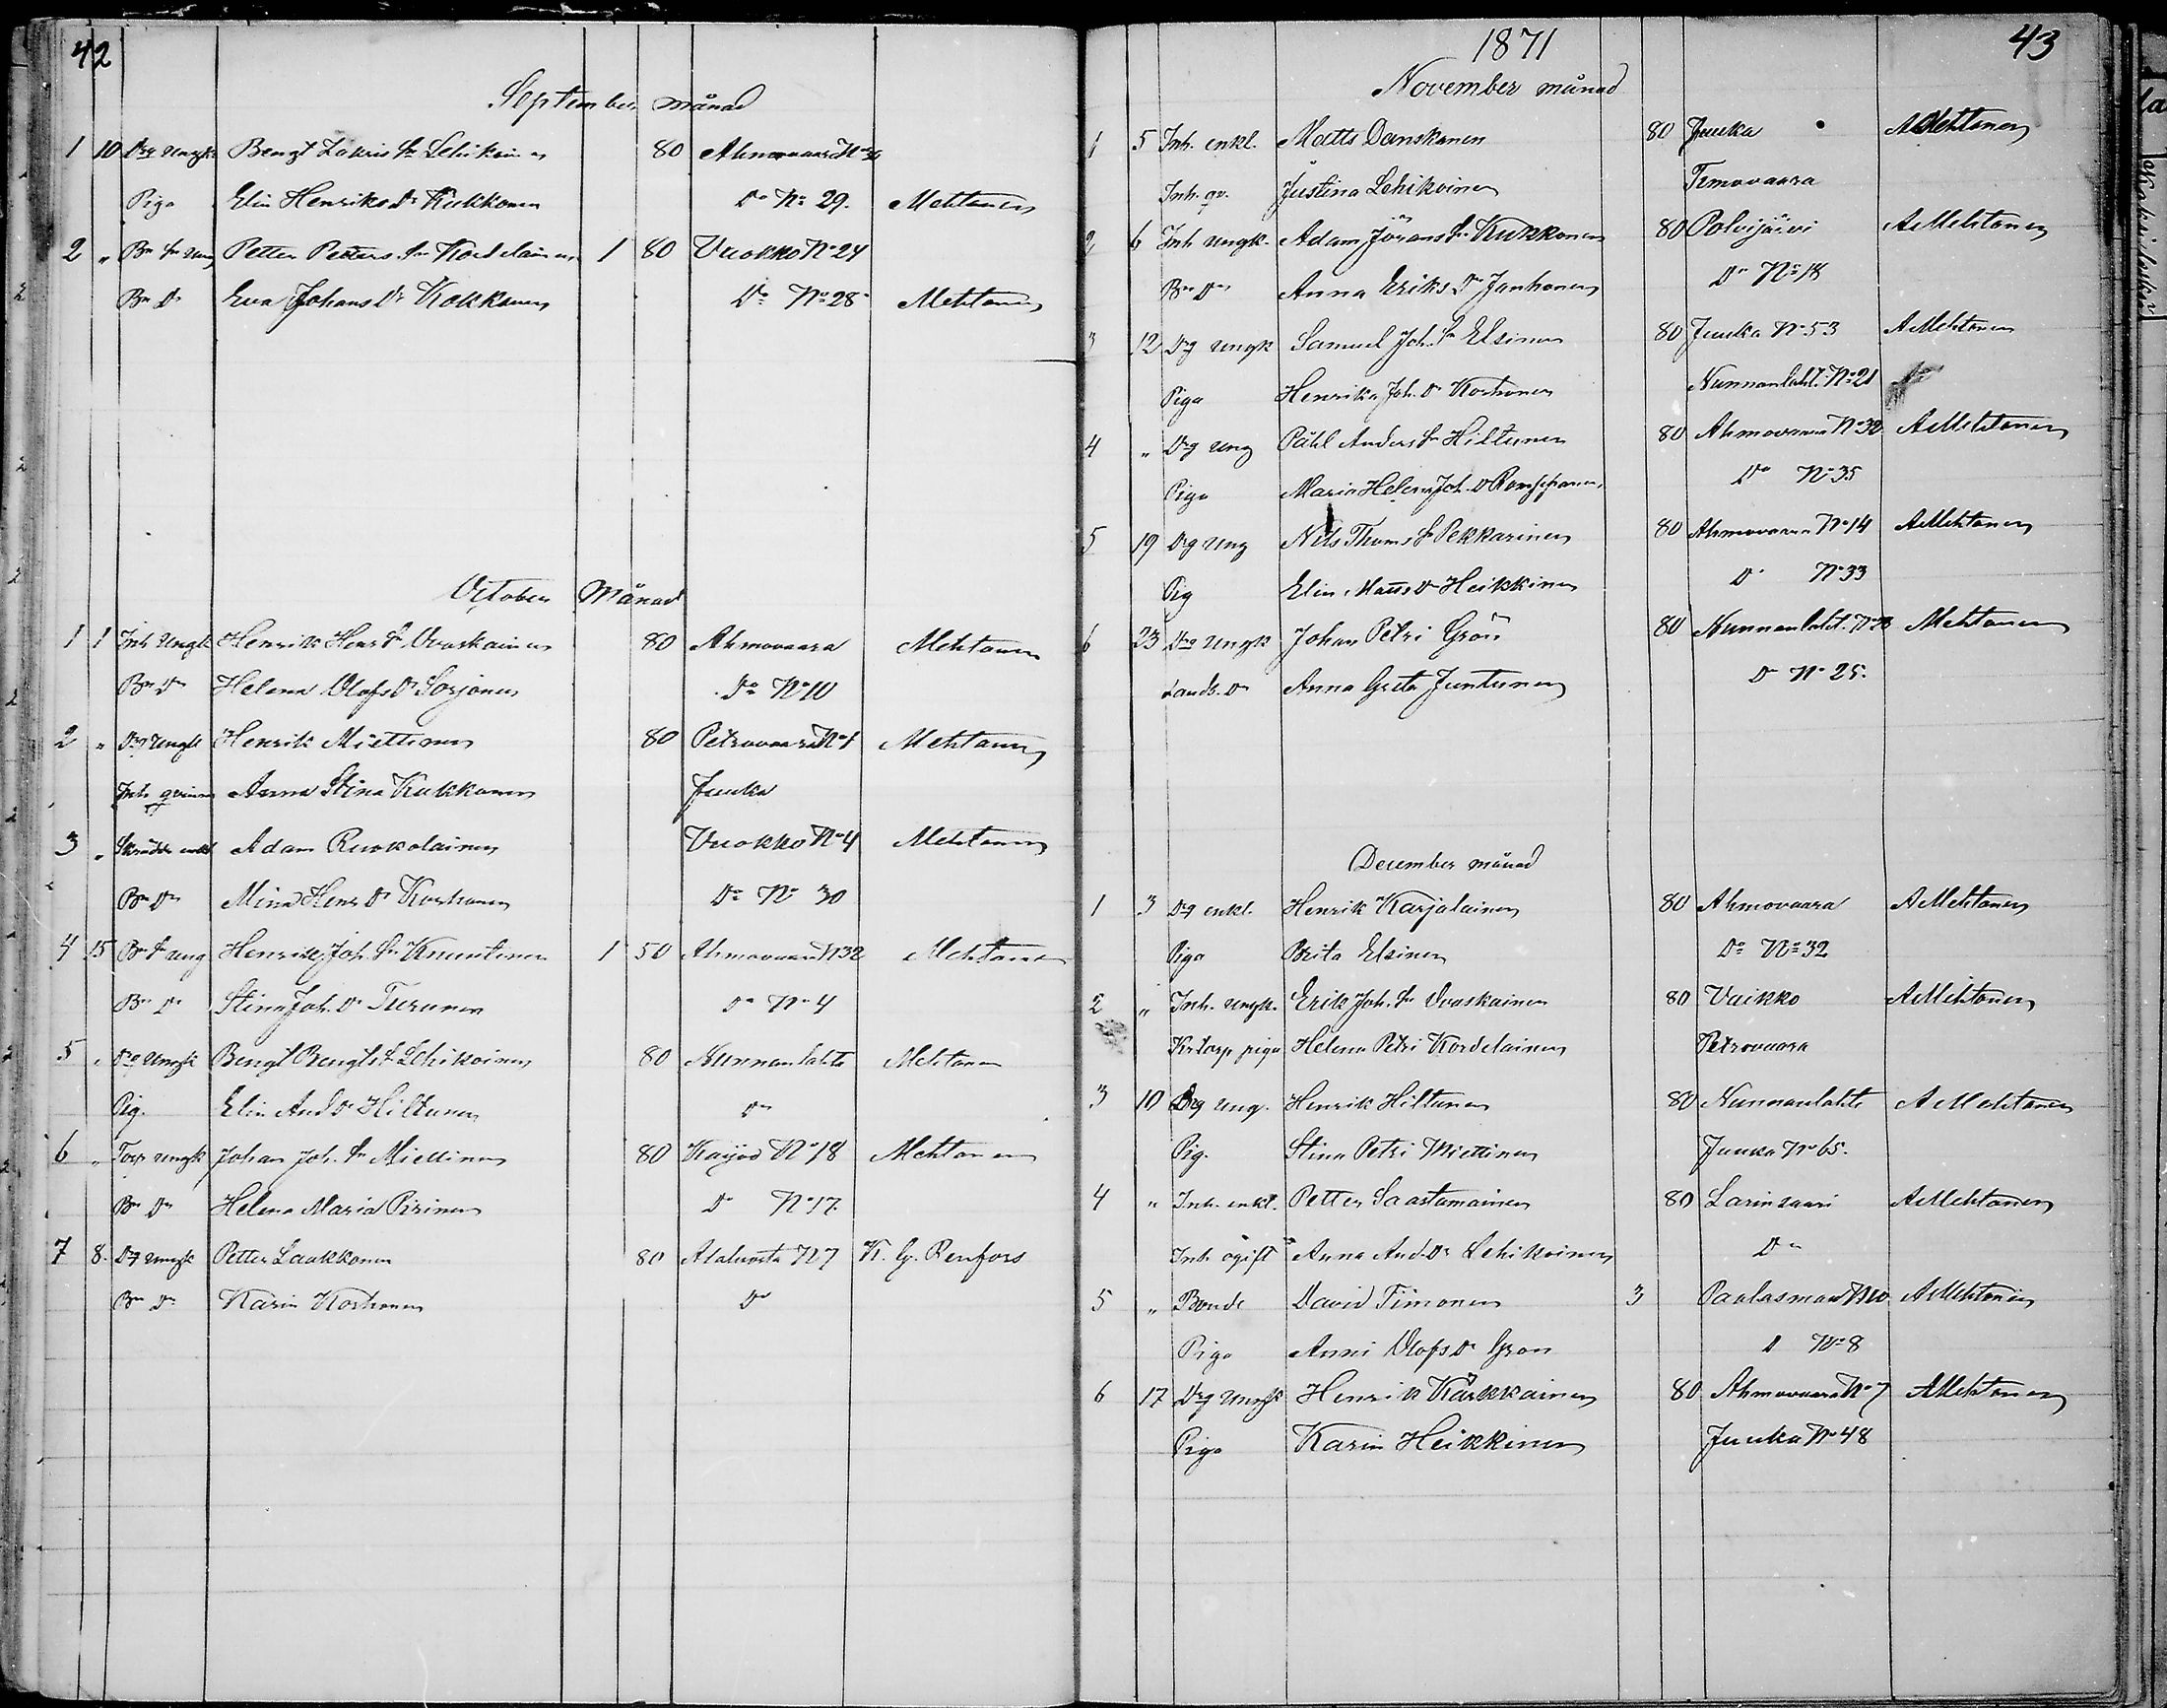 42
September månad
1 10 Drg Ungk Bengt Zakris Sn Lehikoinen 80 Ahmovaara No
Piga Elin Henriks Dr Kukkonen Do No 29. Mehtonen
2 " Bn Sn Ung Petter Petters Sn Kordelainen 1 80 Vuokko No 24
Bn Dr Eva Johans Dr Kokkonen Do No 28 Mehtonen
October Månad
1 1 Inh Ungk Henrik Henr Sn Ovaskainen 80 Ahmovaara Mehtonen
Bn Dr Helena Olofs Dr Sorjonen Do No 10
2 " Drg Ungk Henrik Miettinen 80 Petrovaara No 1 Mehtonen
Inh qvinna Anna Stina Kukkonen Juuka
3 " enkl Adam Ruokolainen Vuokko No 4 Mehtonen
Bn Dr Mina Henr Dr Korhonen Do No 30
4 15 Bn Sn ung Henrik Joh. Sn Knuutinen 1 50 Ahmovaara N 32 Mehtonen
Bn Dr Stina Joh. Dr Turunen Do No 4
5 " Drg Ungk Bengt Bengts S Lehikoinen 80 Nunnanlahti Mehtonen
Pig. Elin And Dr Hiltunen Do
6 " Torp ungk Johan Joh. Sn Miettinen 80 Kajoo No 18 Mehtonen
Bn Dr Helena Maria Pirinen Do No 17.
7 8. Drg ungk Petter Laukkonen 80 Alaluosta No 7 K. G. Renfors
Bn Dr Karin Korhonen Do
1871 43
November månad
1 5 Inh. enkl. Matts Danskanen 80 Juuka A Mehtonen
Inh. qv. Justina Lehikoinen Timovaara
2 6 Inh Ungk. Adam Jörans Sn Kukkonen 80 Polvijärvi A Mehtonen
Bn Dr Anna Eriks Dr Janhonen Do No 18
3 12 Drg Ungk Samuel Joh. Sn Elsinen 80 Juuka No 53 A Mehtonen
Piga Henrika Joh. Dr Korhonen Nunnanlaht. No 21
4 " Drg Ung Påhl Anders Sn Hiltunen 80 Ahmovaara No 32 A Mehtonen
Piga Maria Helena Joh. D Romppanen Do No 35
5 19 Drg Ung Nils Thoms S Pekkarinen 80 Ahmovaara No 14 A Mehtonen
Pig Elin Matts Dr Heikkinen Do No 33
6 23 Drg Ungk Johan Petri Grön 80 Nunnanlaht. No Mehtonen
Landb. Dr Anna Greta Juntunen Do No 25.
December månad
1 3 Drg enkl. Henrik Karjalainen 80 Ahmovaara A Mehtonen
Piga Brita Elsinen Do No 32
2 " Inh. Ungk. Erik Joh. Sn Ovaskainen 80 Vaikko A Mehtonen
Krtorp piga Helena Petri Kordelainen Petrovaara
3 10 Drg Ung. Henrik Hiltunen 80 Nunnanlahti A Mehtonen
Pig. Stina Petri Miettinen Juuka No 65.
4 " Inh. enkl. Petter Saastamoinen 80 Larinsaari A Mehtonen
Inh ogift Anna And. Dr Lehikoinen Do
5 " Bonde David Timonen 3 Paalasmaa No 10 A Mehtonen
Piga Anni Olofs Dr Grön D No 8
6 17 Drg Ungk Henrik Kärkkäinen 80 Ahmovaara No 7 A Mehtonen
Piga Karin Heikkinen Juuka No 48